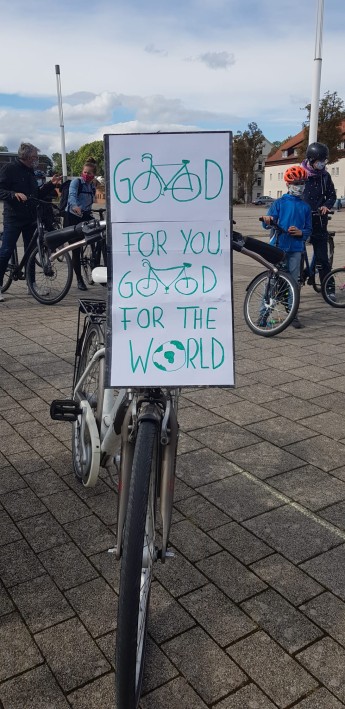 GOOD
FOR YOU,
GOOD
FOR THE
WORLD